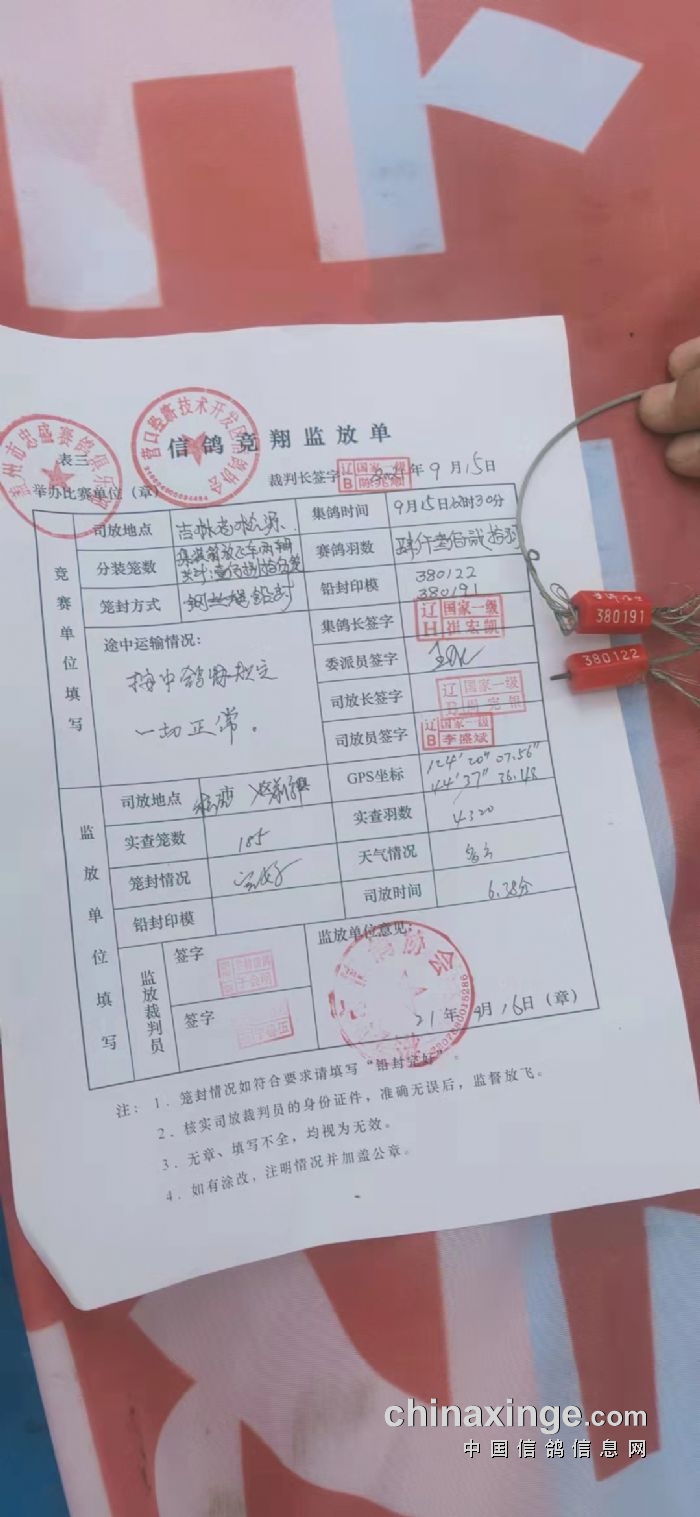 信鸽竞翔监放单
营口经济技术开发区信鸽协会
州市忠盛赛鸽俱乐部
表三
举办比赛单位（章）
裁判长签字 2021年9月15日
辽 国家一级
B
竞赛单位填写
司放地点 吉林省松源
集鸽时间 9月15日6时30分
分装笼数 集装箱放飞车两辆
共计:壹佰捌拾伍笼
赛鸽羽数 肆仟叁佰贰拾羽
笼封方式 钢丝绳铅封
铅封印模 380122
380191
途中运输情况:
按中鸽协规定
一切正常。
集鸽长签字 辽 国家一级
H 崔宏凯
委派员签字
司放长签字 辽 国家一级
司放员签字 辽 国家一级
B 李盛斌
GPS坐标 124′20″07.56″
44′37″36.148
监放单位填写
司放地点
实查笼数 185
实查羽数 4320
笼封情况 完好
天气情况 多云
铅封印模
司放时间 6.38分
监放裁判员
签字
签字
监放单位意见:
21年9月16日（章）
注: 1．笼封情况如符合要求请填写“铅封完好”。
2．核实司放裁判员的身份证件，准确无误后，监督放飞。
3．无章、填写不全，均视为无效。
4．如有涂改，注明情况并加盖公章。
380191
380122
chinaxinge.com
中国信鸽信息网